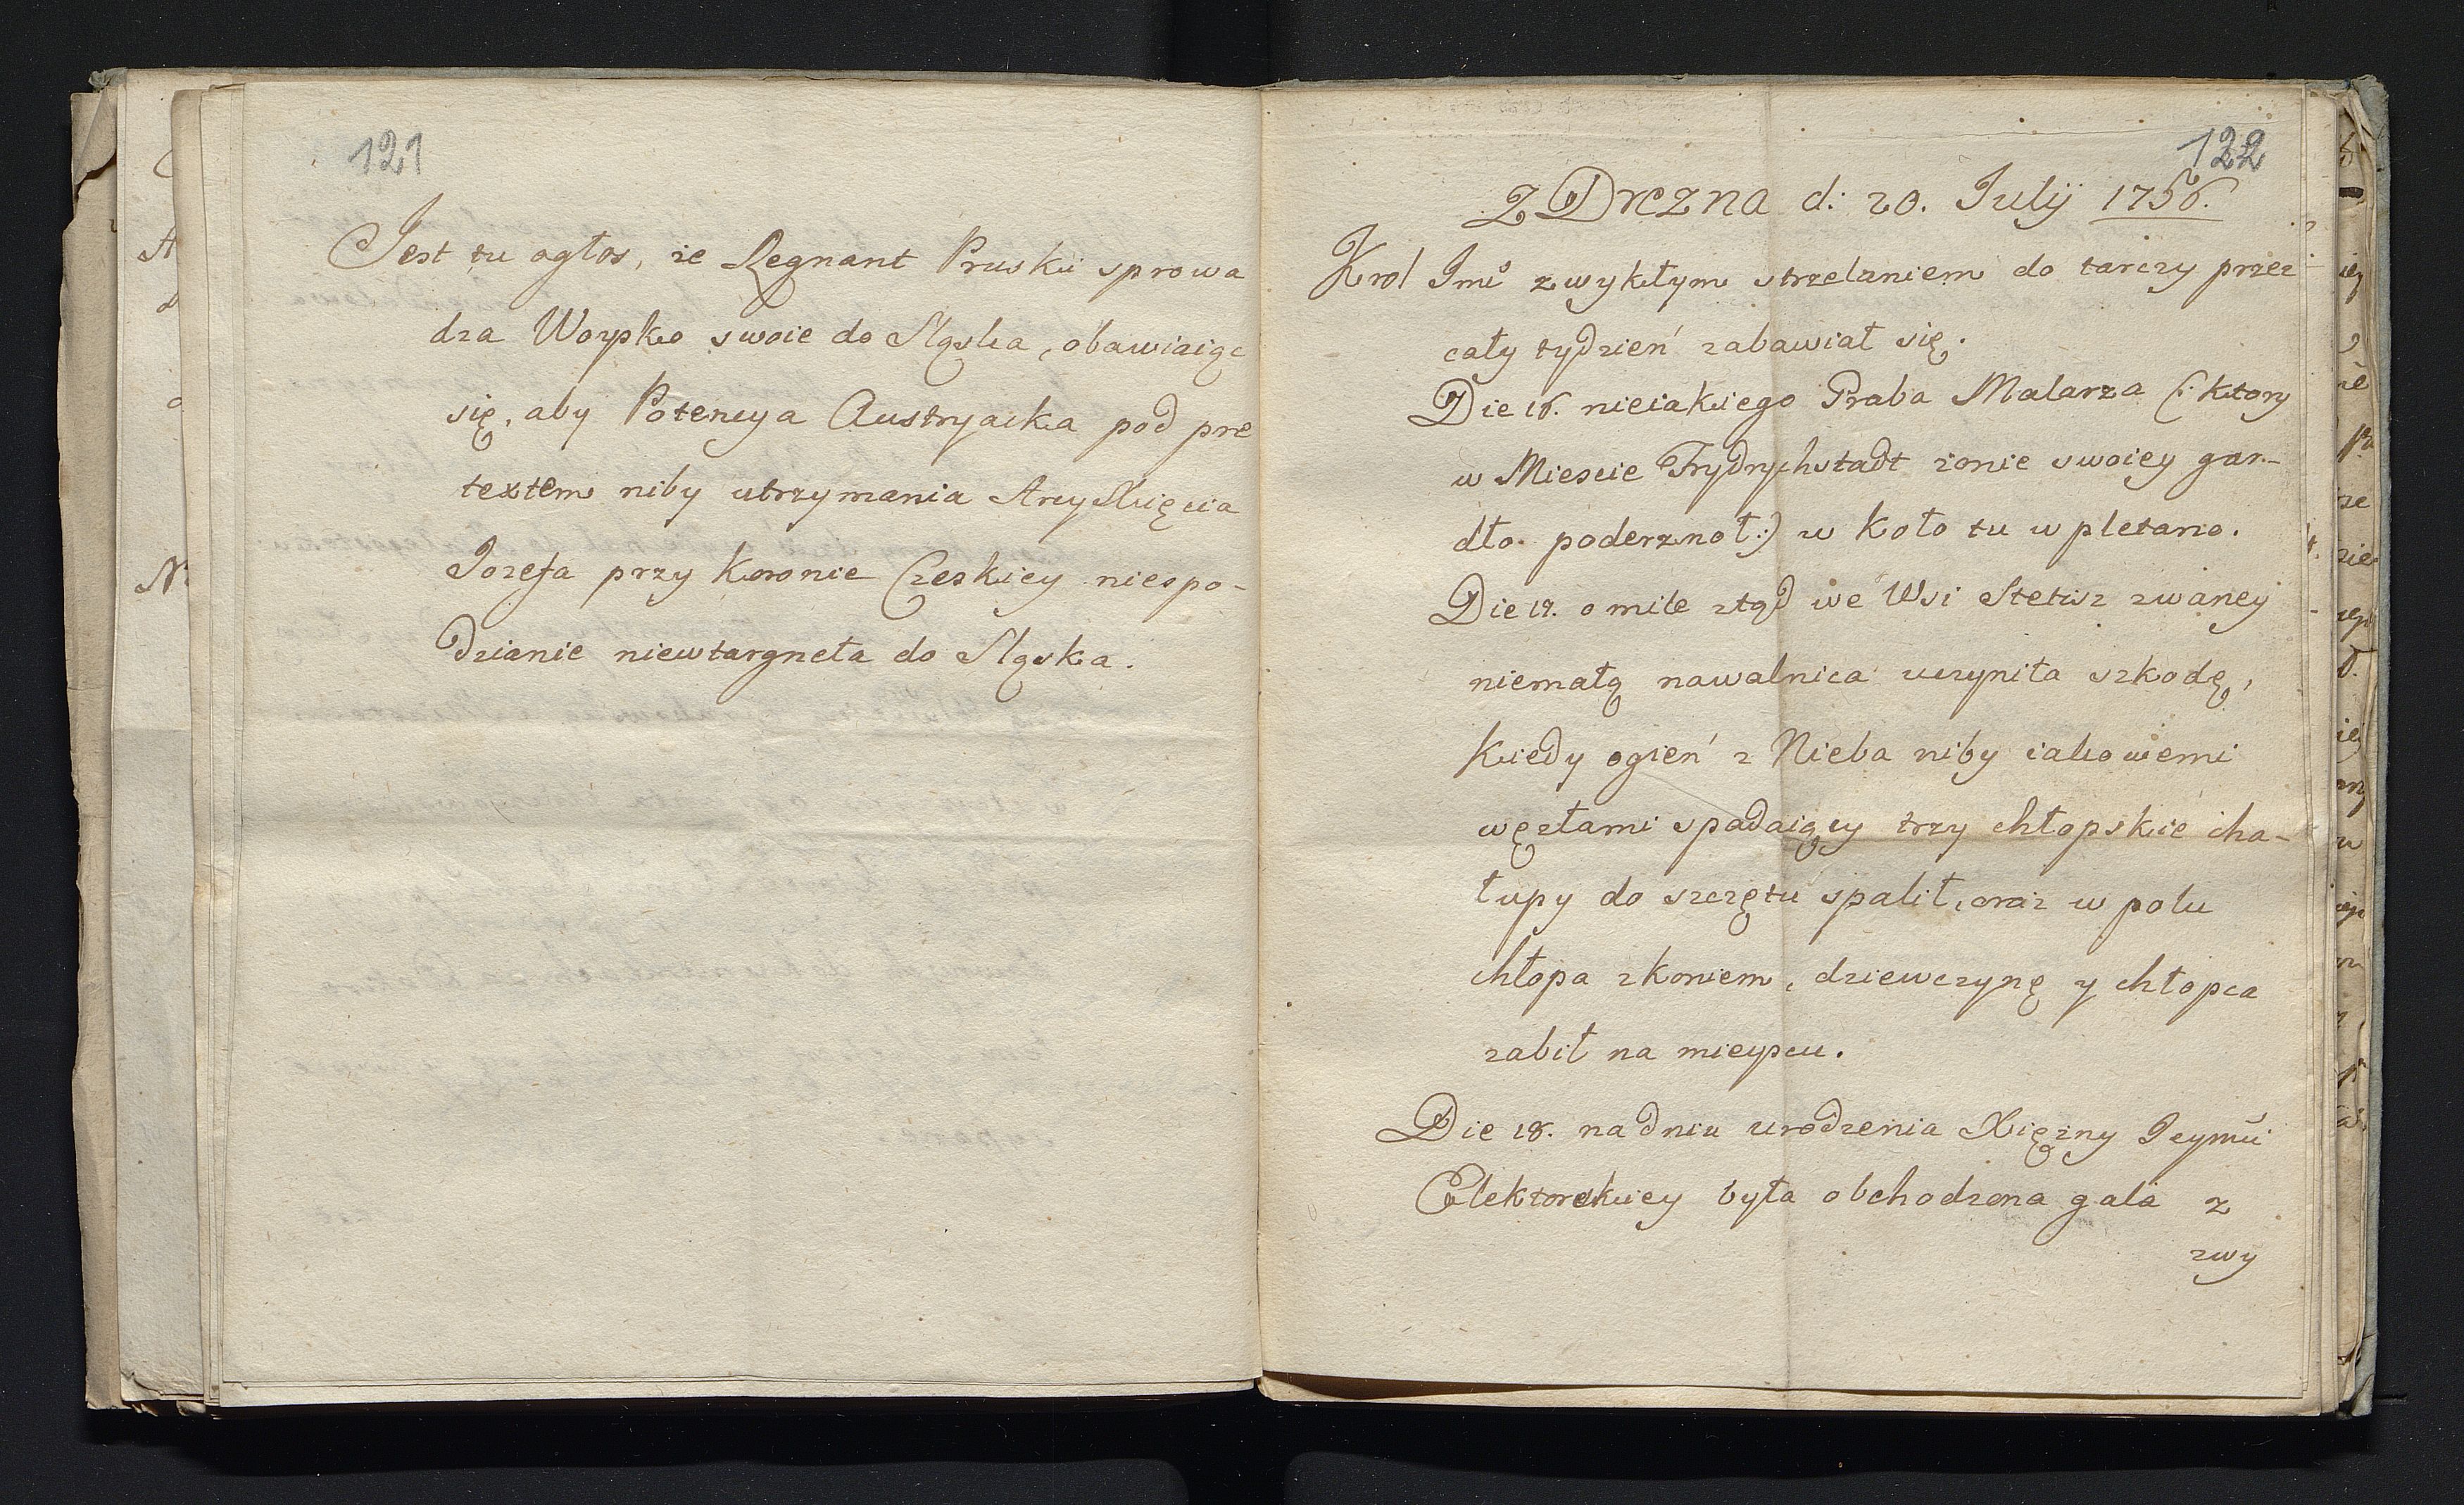 121
Jest tu ogłos, że Regnant Pruski sprowa
dza Woysko swoie do Sląska, obawiaiąc
się, aby Potencya Austryacka pod pre
textem niby utrzymania ArcyXiięcia
Jozefa przy Koronie Czeskiey niespo-
dzianie niewtargneła do Sląska.
122
Z Drezna d: 20. Julÿ 1756.
Krol Jmć zwykłym strzelaniem do tarczy przez
cały tydzień zabawiał się.
Die 16. nieiakiego Praba Malarza (: ktory
w Miescie Frydrychstadt żonie swoiey gar-
dło poderznoł :) w koło tu wpletano.
Die 17. o mile ztąd we Wsi Stetisz zwaney
niemałą nawalnica uczyniła szkodę,
kiedy ogień z Nieba niby iakowemi
węzłami spadaiący trzy chłopskie cha-
łupy do szczętu spalił, oraz w polu
chłopa z koniem, dziewczynę y chłopca
zabił na mieyscu.
Die 18. na dniu urodzenia Xiężny Jeymci
Elektorskiey była obchodzona gala z
zwy